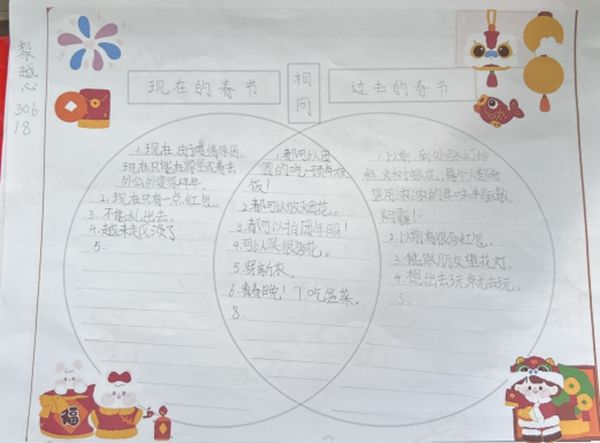 黎越心
306
18
现在的春节
相同
过去的春节
1.现在，由于疫情原因，
现在只能在家里或者去
外公外婆家拜年。
2.现在只有一点红包。
3.不能乱出去。
4.越来越没了
5.
1.都可以团
圆的吃一顿年夜
饭！
2.都可以放烟花。
3.都可以拍团年照！
4.可以买很多花。
5.穿新衣。
6.看春晚！7吃盆菜。
8
1.以前，到处张灯结
2.以前有很多红包。
3.能跟朋友逛花灯。
4.想出去玩就去玩。
5.
福